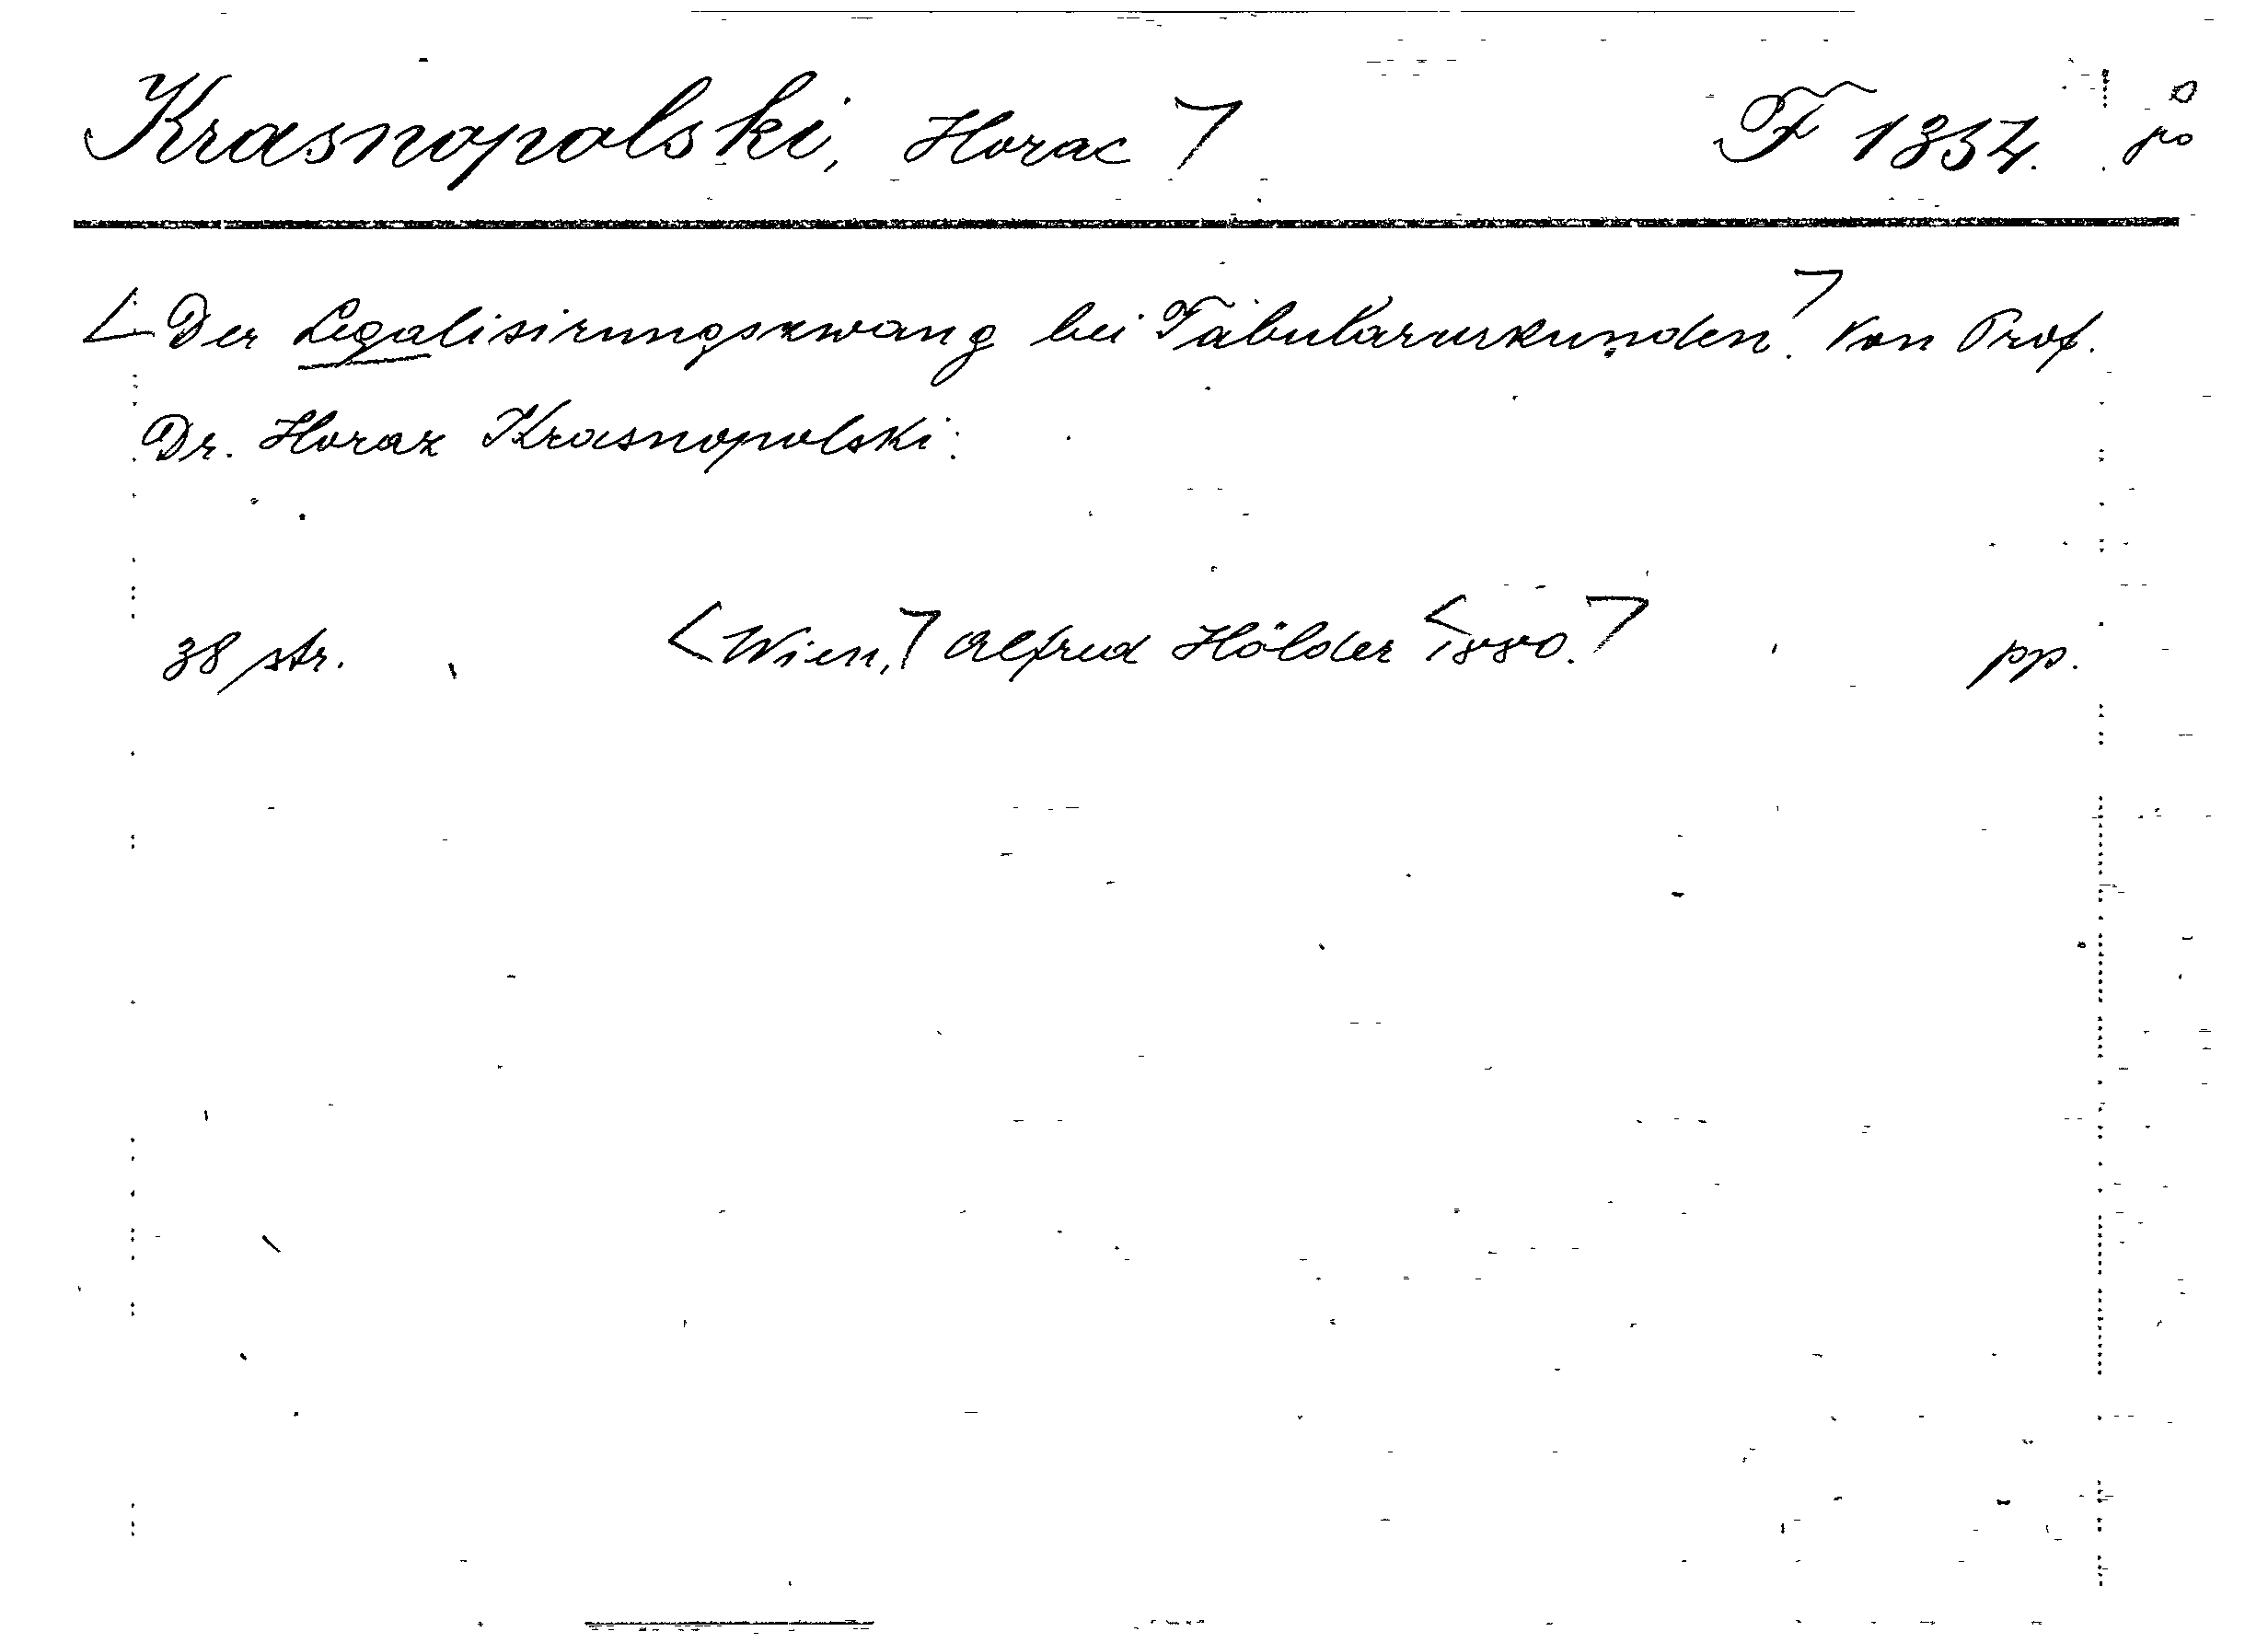 Krasnopolski, Horac F 1354.
Der Legalisirungszwang bei Tabularurkunden. Von Prof.
Dr. Horaz Krasnopolski.
38 str. <Wien,> Alfred Hölder <1880.> pp.